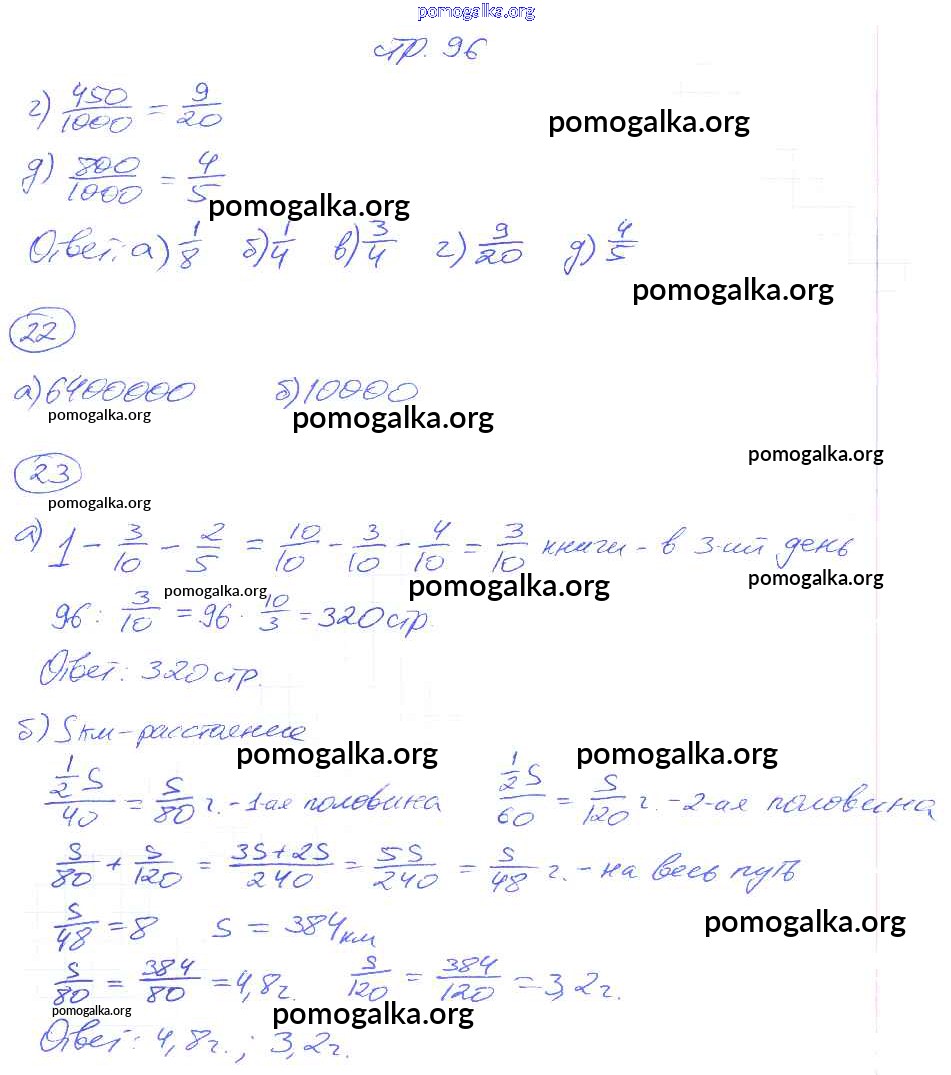 pomogalka.org
стр. 96
г) 450/1000 = 9/20
pomogalka.org
д) 800/1000 = 4/5
pomogalka.org
Ответ: а) 1/8 б) 1/4 в) 3/4 г) 9/20 д) 4/5
pomogalka.org
22
а) 6400000 б) 10000
pomogalka.org pomogalka.org
pomogalka.org
23
pomogalka.org
а) 1 - 3/10 - 2/5 = 10/10 - 3/10 - 4/10 = 3/10 книги - в 3-ий день
pomogalka.org pomogalka.org pomogalka.org
96 : 3/10 = 96 · 10/3 = 320 стр.
Ответ: 320 стр.
б) S км - расстаение
pomogalka.org pomogalka.org
1/2 S/40 = S/80 г. - 1-ая половина 1/2 S/60 = S/120 г. - 2-ая половина
S/80 + S/120 = 3S+2S/240 = 5S/240 = S/48 г. - на весь путь
pomogalka.org
S/48 = 8 S = 384 км
S/80 = 384/80 = 4,8 г. S/120 = 384/120 = 3,2 г.
pomogalka.org pomogalka.org
Ответ: 4,8 г.; 3,2 г.